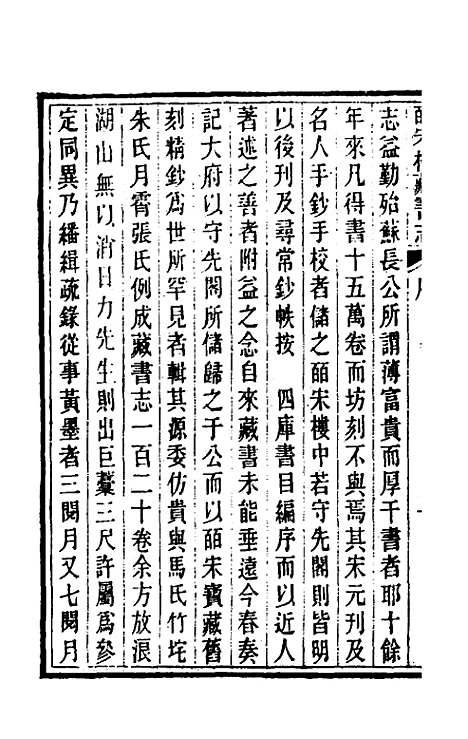 志益勤殆蘇長公所謂薄富貴而厚于書者耶十餘
年來凡得書十五萬卷而坊刻不與焉其宋元刊及
名人手鈔手校者儲之皕宋樓中若守先閣則皆明
以後刊及尋常鈔帙按　四庫書目編序而以近人
著述之善者附益之念自來藏書未能垂遠今春奏
記大府以守先閣所儲歸之于公而以皕宋寶藏舊
刻精鈔爲世所罕見者輯其源委仿貴與馬氏竹垞
朱氏月霄張氏例成藏書志一百二十卷余方放浪
湖山無以消日力先生則出巨藁三尺許屬爲參
定同異乃繙緝疏錄從事黃墨者三閱月又七閱月